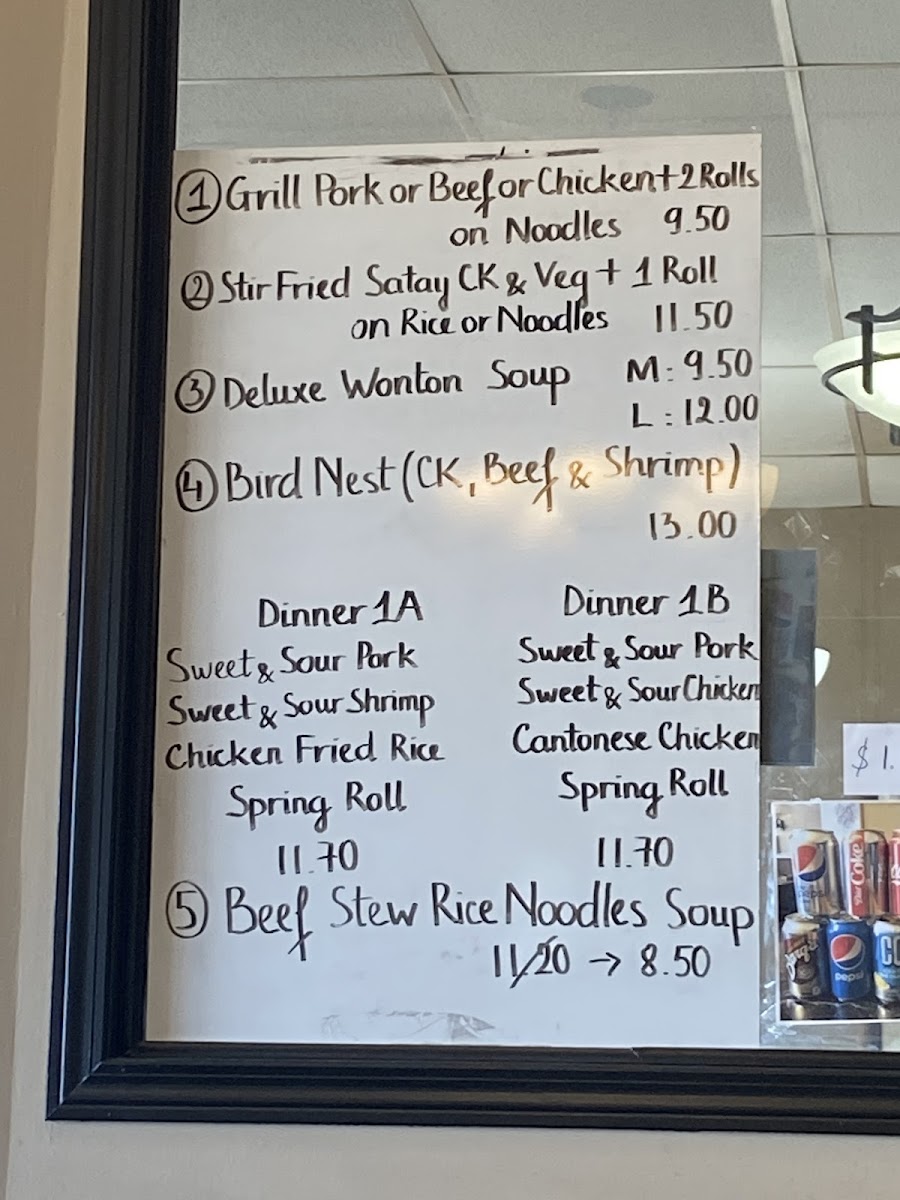 ① Grill Pork or Beef or Chicken + 2 Rolls
on Noodles 9.50
② Stir Fried Satay CK & Veg + 1 Roll
on Rice or Noodles 11.50
③ Deluxe Wonton Soup M: 9.50
L: 12.00
④ Bird Nest (CK, Beef & Shrimp)
13.00
Dinner 1A
Sweet & Sour Pork
Sweet & Sour Shrimp
Chicken Fried Rice
Spring Roll
11.70
Dinner 1B
Sweet & Sour Pork
Sweet & Sour Chicken
Cantonese Chicken
Spring Roll
11.70
⑤ Beef Stew Rice Noodles Soup
11.20 → 8.50
$1.
pepsi
Coke
pepsi